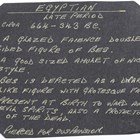 EGYPTIAN
LATE PERIOD
CIRCA 664-343 BC.
A GLAZED FAIENCE DOUBLE
SIDED FIGURE OF BES.
A GOOD SIZED AMULET OF NICE
STYLE.
BES IS DEPICTED AS A DWARF
LIKE FIGURE WITH GROTESQUE FA
PRESENT AT BIRTH TO WARD O
EVIL SPIRITS. ALSO A PROTECTO
OF THE DEAD.
PIERCED FOR SUSPENSION